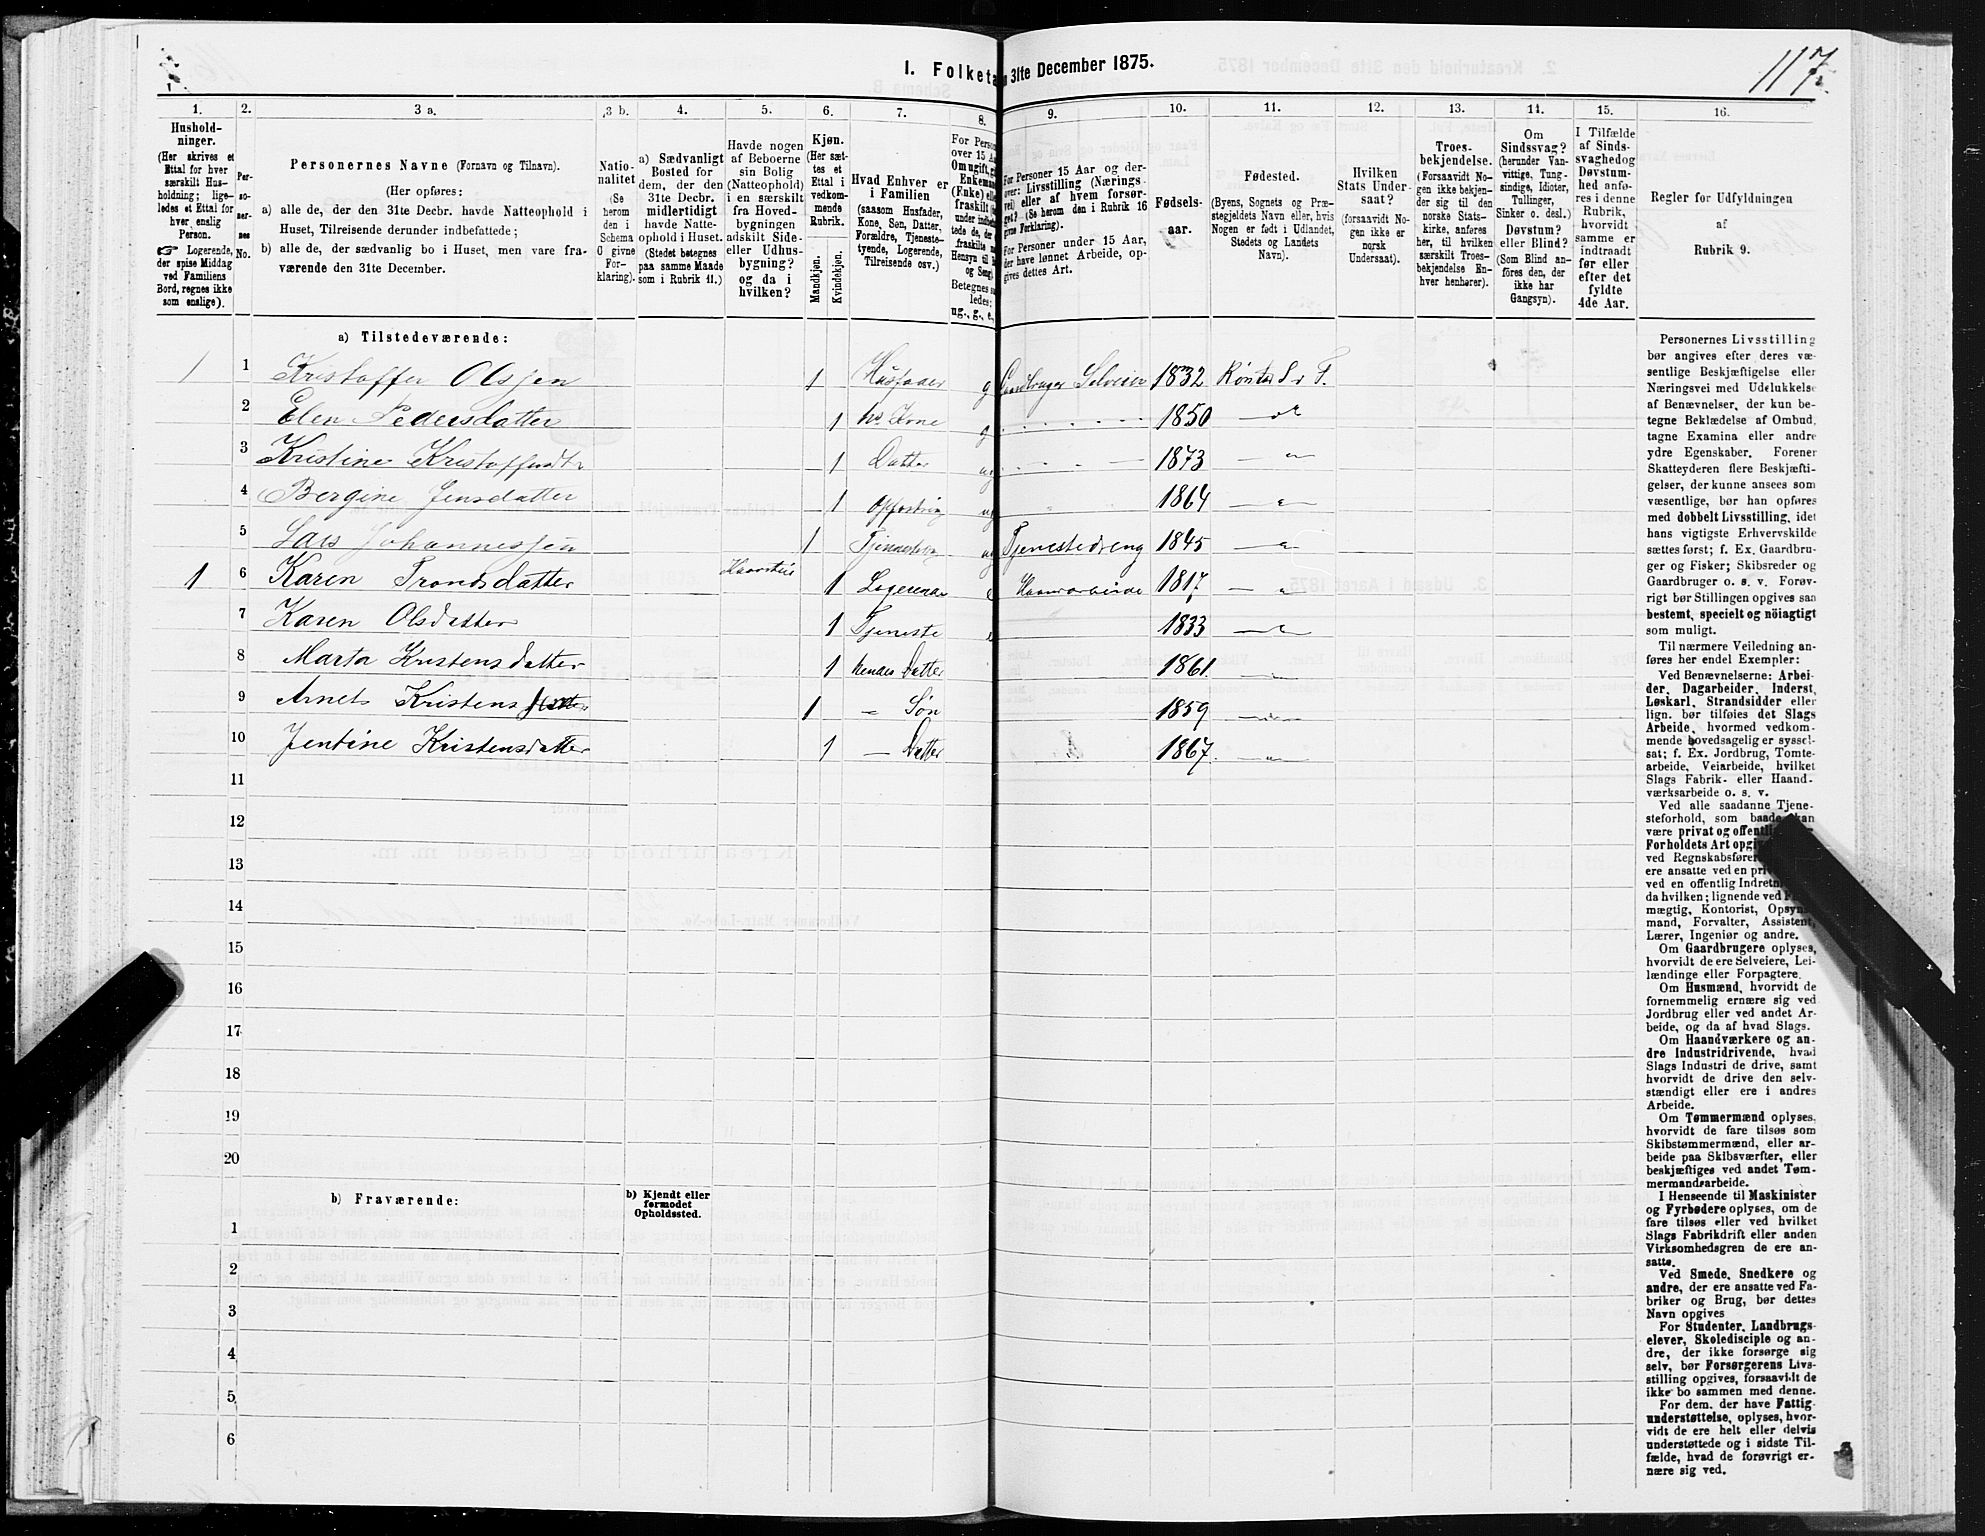 I. Folketa 31te December 1875.
117
1. 2. 3 a. 3 b. 4. 5. 6. 7. 8. 9. 10. 11. 12. 13. 14. 15. 16.
Hushold-
ninger.
(Her skrives et
Ettal for hver
særskilt Hus-
holdning; lige-
ledes et Ettal for
hver enslig
Person.
☞ Logerende,
der spise Middag
ved Familiens
Bord, regnes ikke
som enslige).
Per-
so-
ner-
nes
No.
Personernes Navne (Fornavn og Tilnavn).
(Her opføres:
a) alle de, der den 31te Decbr. havde Natteophold i
Huset, Tilreisende derunder indbefattede;
b) alle de, der sædvanlig bo i Huset, men vare fra-
værende den 31te December.
Natio-
nalitet
(Se
herom
den i
Schema
G givne
For-
klaring).
a) Sædvanligt
Bosted for
dem, der den
31te Decbr.
midlertidigt
havde Natte-
ophold i Huset.
(Stedet betegnes
paa samme Maade
som i Rubrik 11.)
Havde nogen
af Beboerne
sin Bolig
(Natteophold)
i en særskilt
fra Hoved-
bygningen
adskilt Side-
eller Udhus-
bygning?
og da i
hvilken?
Kjøn.
(Her sæt-
tes et
Ettal i
vedkom-
mende
Rubrik.
Mandkjøn.
Kvindekjøn.
Hvad Enhver er
i Familien
(saasom Husfader,
Kone, Søn, Datter,
Forældre, Tjeneste-
tyende, Logerende,
Tilreisende osv.)
For Person
over 15 A
Om ugift, g
Enkema
(Enke) el
fraskilt
under indbe
tede de, der
fraskilte
Hensyn til
og Seng
Betegnes s
ledes:
ug., g., e.,
For Personer 15 Aar og der-
over: Livsstilling (Nærings-
vei) eller af hvem forsør-
get? (Se herom den i Rubrik 16
givne Forklaring).
For Personer under 15 Aar,
der have lønnet Arbeide, op-
gives dettes Art.
Fødsels-
aar.
Fødested.
(Byens, Sognets og Præ-
stegjeldets Navn eller, hvis
Nogen er født i Udlandet,
Stedets og Landets
Navn).
Hvilken
Stats Under-
saat?
(forsaavidt No-
gen ikke er
norsk
Undersaat).
Troes-
bekjendelse.
(Forsaavidt No-
gen ikke bekjen-
der sig til den
norske Stats-
kirke, anføres
her, til hvilken
særskilt Troes-
bekjendelse En-
hver henhører).
Om
Sindssvag?
(herunder Van-
vittige, Tung-
sindige, Idioter,
Tullinger,
Sinker o. desl.)
Døvstum?
eller Blind?
(Som Blind an-
føres den, der
ikke har
Gangsyn).
I Tilfælde
af Sinds-
svaghed og
Døvstum-
hed anfø-
res i denne
Rubrik,
hvorvidt
samme er
indtraadt
før eller
efter det
fyldte
4de Aar.
Regler for Udfyldningen
af
Rubrik 9.
a) Tilstedeværende:
1 1 Kristoffer Olsjen 1 Husfader g Gaardbruger Selveier 1832
2 Elen Pedersdatter 1 hs Kone g 1850
3 Kristine 1 Datter ug 1873
4 Bergine Jensdatter 1 ug 1864
5 Lars Johannesjen 1 ug Tjenestedreng 1845
1 6 Karen Trondsdatter 1 Haandarbeide 1817
7 Karen Olsdatter 1 Tjeneste 1833
8 Marta Kristensdatter 1 hendes Datter 1861
9 Kristens 1 Søn 1859
10 Jentine Kristensdatter 1 Datter 1867
11
12
13
14
15
16
17
18
19
20
b) Fraværende:
b) Kjendt eller
formodet
Opholdssted.
1
2
3
4
5
6
Personernes Livsstilling
bør angives efter deres væ-
sentlige Beskjæftigelse eller
Næringsvei med Udelukkelse
af Benævnelser, der kun be-
tegne Beklædelse af Ombud,
tagne Examina eller andre
ydre Egenskaber. Forener
Skatteyderen flere Beskjæfti-
gelser, der kunne ansees som
væsentlige, bør han opføres
med dobbelt Livsstilling, idet
hans vigtigste Erhvervskilde
sættes først; f. Ex. Gaardbru-
ger og Fisker; Skibsreder og
Gaardbruger o. s. v. Forøv-
rigt bør Stillingen opgives saa
bestemt, specielt og nöiagtigt
som muligt.
Til nærmere Veiledning an-
føres her endel Exempler:
Ved Benævnelserne: Arbei-
der, Dagarbeider, Inderst,
Løskarl, Strandsidder eller
lign. bør tilføies det Slags
Arbeide, hvormed vedkom-
mende hovedsagelig er syssel-
sat; f. Ex. Jordbrug, Tomte-
arbeide, Veiarbeide, hvilket
Slags Fabrik- eller Haand-
værksarbeide o. s. v.
Ved alle saadanne Tjene-
steforhold, som baade kan
være privat og offentlig
Forholdets Art
ved
ere ansatte ved en
ved en offentlig
da hvilken; lignende ved
mægtig, Kontorist,
mand, Forvalter, Assistent,
Lærer, Ingeniør og andre.
Om Gaardbrugere oplyses,
hvorvidt de ere Selveiere, Lei-
lændinge eller Forpagtere.
Om Husmænd, hvorvidt de
fornemmelig ernære sig ved
Jordbrug eller ved andet Ar-
beide, og da af hvad Slags.
Om Haandværkere og an-
dre Industridrivende, hvad
Slags Industri de drive, samt
hvorvidt de drive den selv-
stændigt eller ere i andres
Arbeide.
Om Tømmermænd oplyses,
hvorvidt de fare tilsøs som
Skibstømmermænd, eller ar-
beide paa Skibsværfter, eller
beskjæftiges ved andet Tøm-
mermandsarbeide.
I Henseende til Maskinister
og Fyrbødere oplyses, om de
fare tilsøs eller ved hvilket
Slags Fabrikdrift eller anden
Virksomhedsgren de ere an-
satte.
Ved Smede, Snedkere og
andre, der ere ansatte ved Fa-
briker og Brug, bør dettes
Navn opgives
For Studenter, Landbrugs-
elever, Skoledisciple og an-
dre, der ikke forsørge sig
selv, bør Forsørgerens Livs-
stilling opgives, forsaavidt de
ikke bo sammen med denne.
For dem, der have Fattig-
understøttelse, oplyses, hvor-
vidt de ere helt eller delvis
understøttede og i sidste Til-
fælde, hvad de forøvrigt er-
nære sig ved.